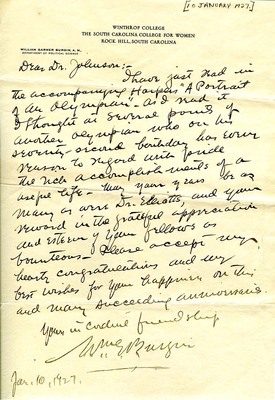 [10 JANUARY 1927.]
WINTHROP COLLEGE
THE SOUTH CAROLINA COLLEGE FOR WOMEN
ROCK HILL, SOUTH CAROLINA
WILLIAM GARNER BURGIN, A. M.
DEPARTMENT OF POLITICAL SCIENCE
Dear Dr. Johnson:-
I have just read in
the accompanying Harpers "A Portrait
of an Olympian". As I read it
I thought at several points of
another Olympian who on his
seventy-second birthday has every
reason to regard with pride
the rich accomplishments of a
useful life. May your years be as
many as were Dr. Eliot's, and your
reward in the grateful appreciation
and esteem of your fellows as
bounteous. Please accept my
hearty congratulations and my
best wishes for your happiness on this
and many succeeding anniversaries.
Yours in cordial friendship
Wm G Burgin
Jan. 10, 1927.